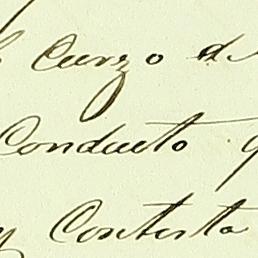 Curzo de
Conducto q
y Contesta